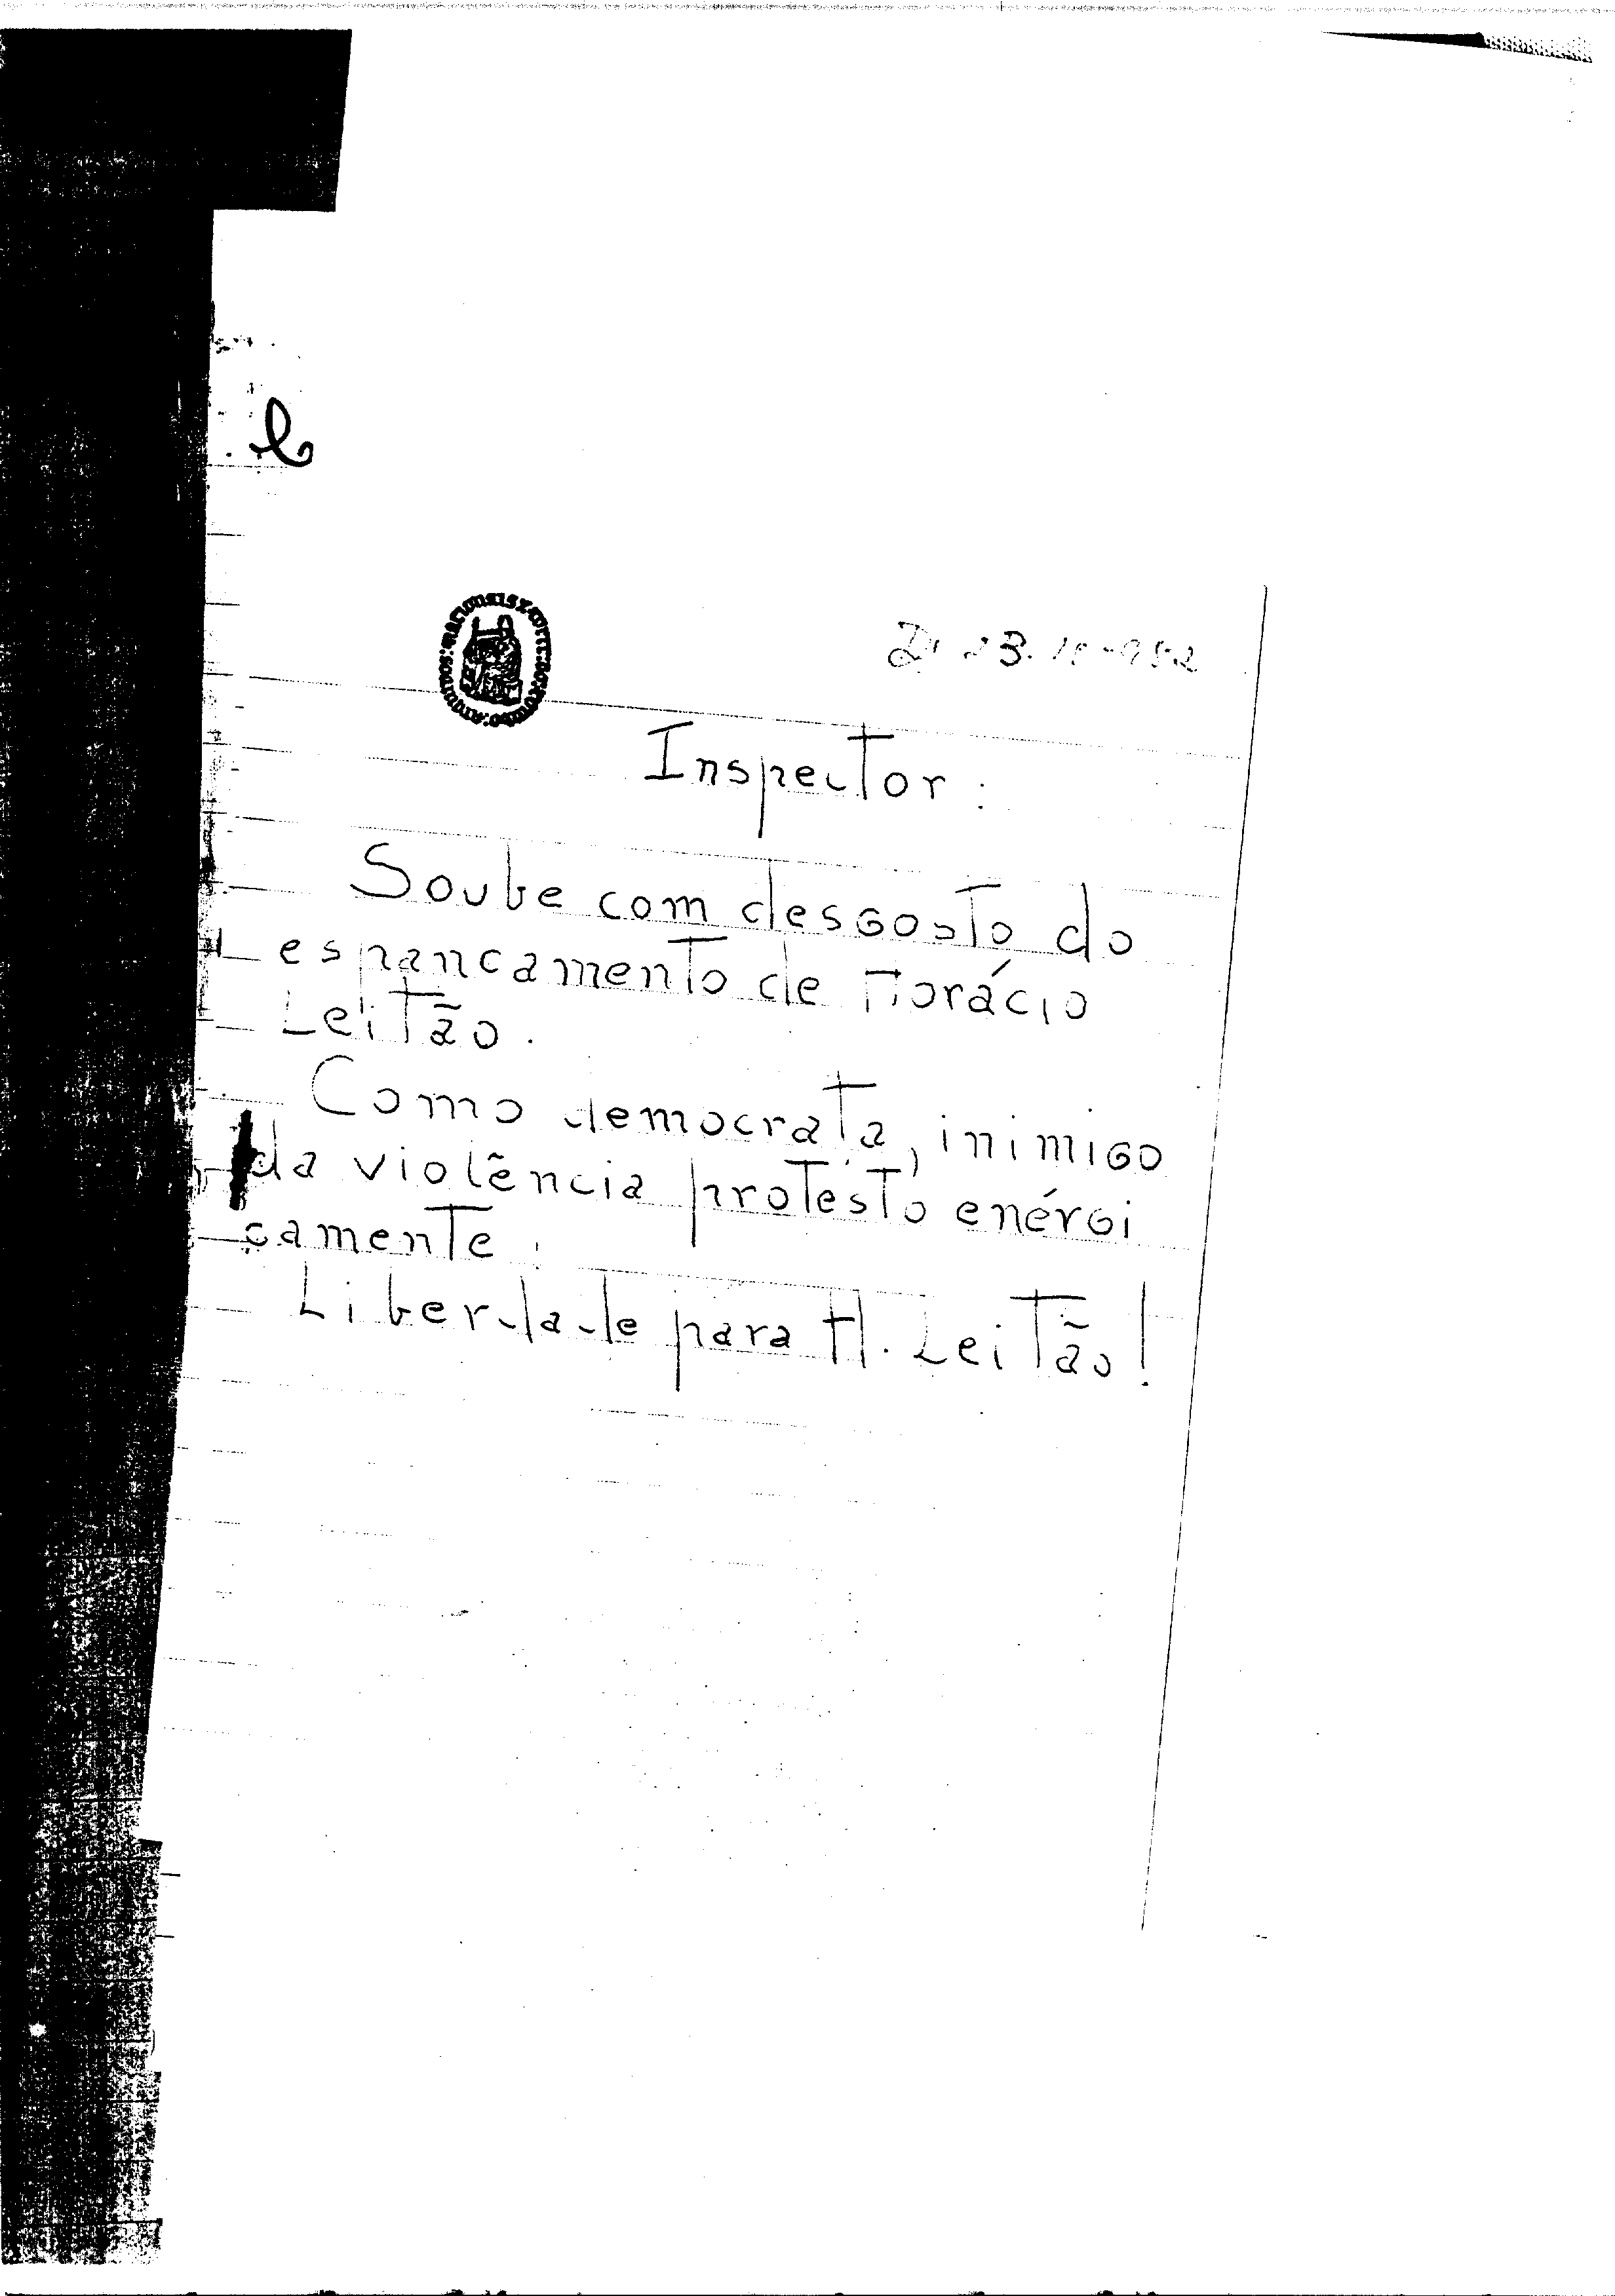 Inspector:
Soube com desgosto do
espancamento de Horácio
Leitão.
Como democrata, inimigo
da violência protésto enérgi
camente.
Liberdade para H. Leitão!